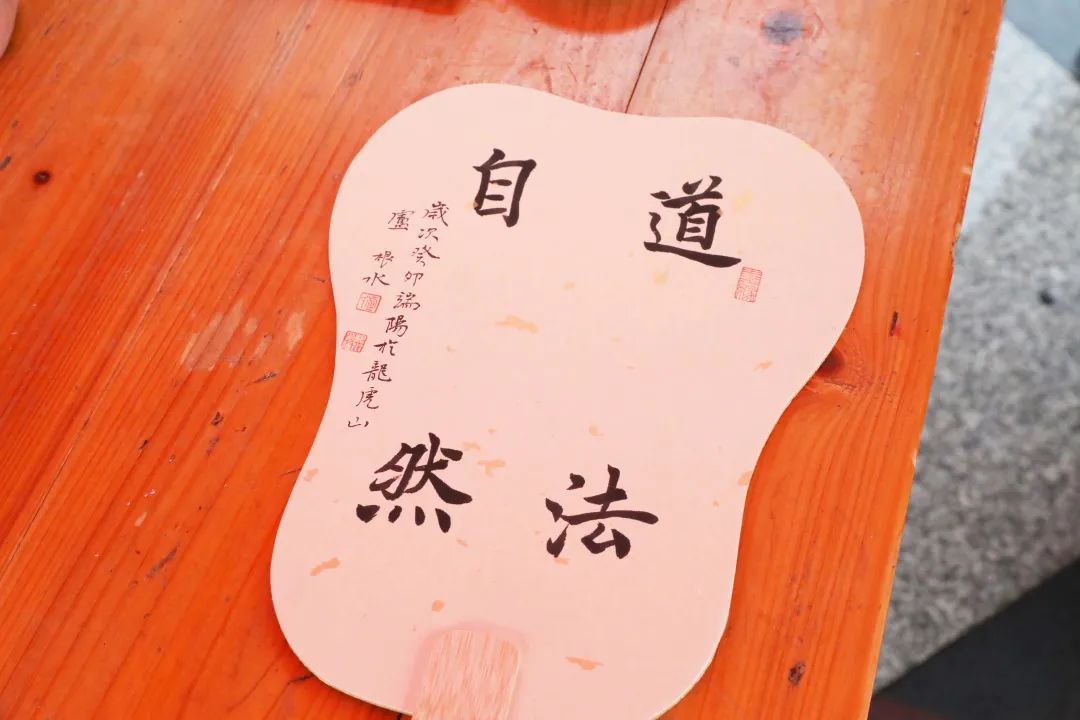 道法
自然
歲次癸卯端陽於龍虎山
盧根水